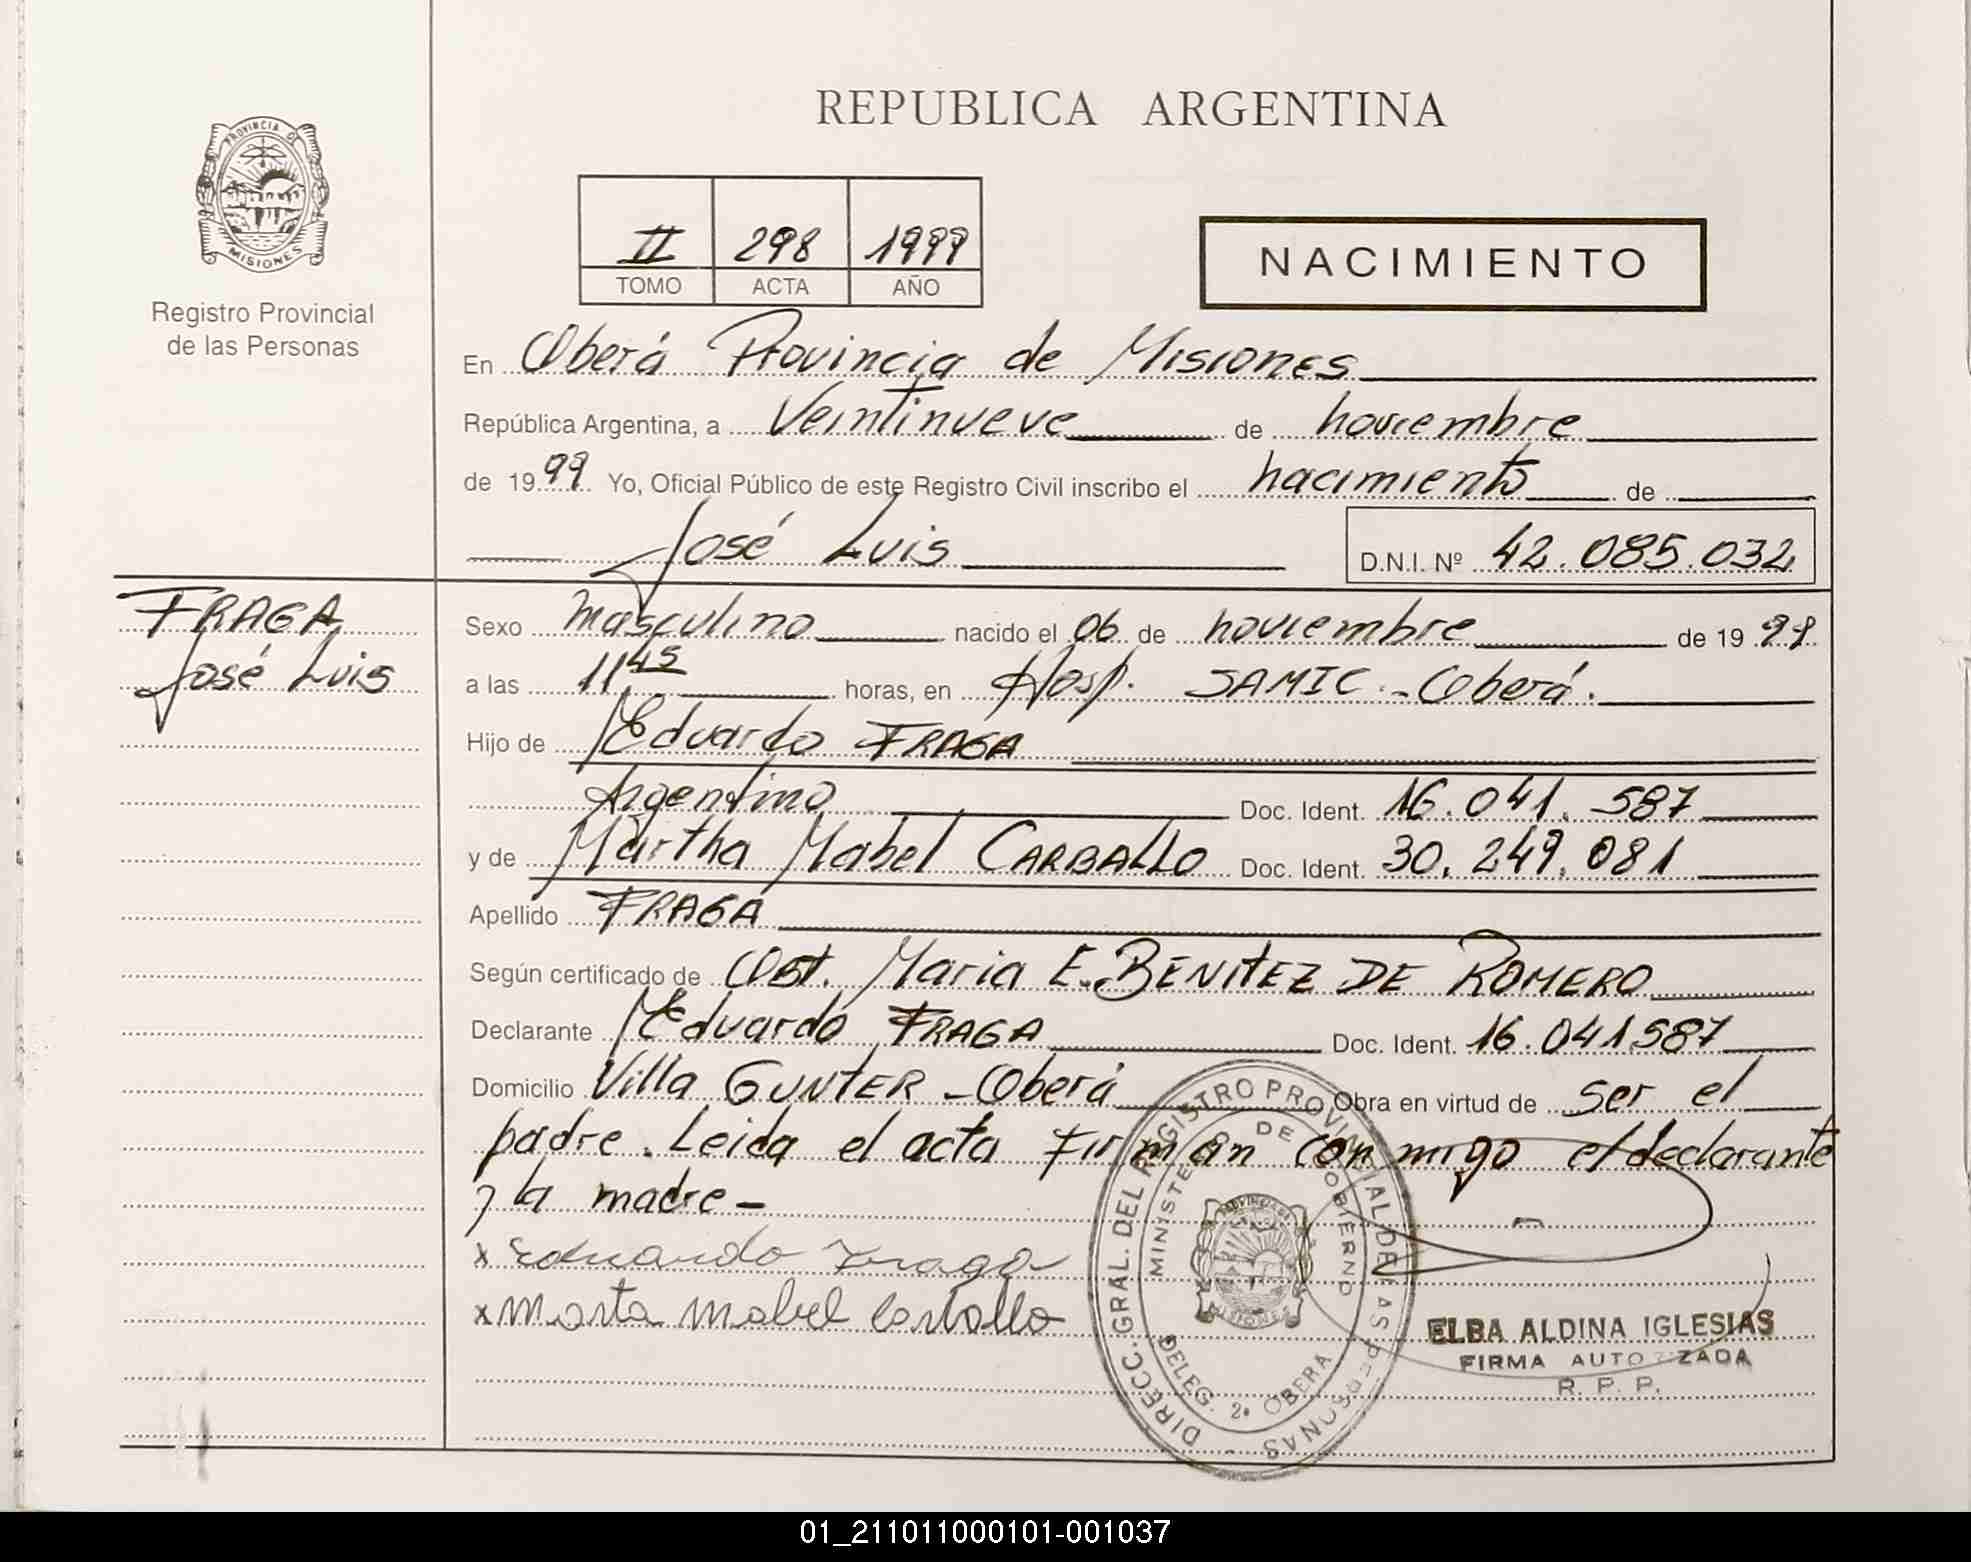 PROVINCIA D
MISIONES
Registro Provincial
de las Personas
REPUBLICA ARGENTINA
II 298 1999
TOMO ACTA AÑO
NACIMIENTO
En Oberá Provincia de Misiones
República Argentina, a Veintinueve de noviembre
de 1999 Yo, Oficial Público de este Registro Civil inscribo el nacimiento de
José Luis D.N.I. Nº 42.085.032
FRAGA
José Luis
Sexo masculino nacido el 06 de noviembre de 1999
a las 11 45 horas, en Hosp. SAMIC - Oberá.
Hijo de Eduardo FRAGA
Argentino Doc. Ident. 16.041.587
y de Martha Mabel CARBALLO Doc. Ident. 30.249.081
Apellido FRAGA
Según certificado de Obst. Maria E. BENITEZ DE ROMERO
Declarante Eduardo FRAGA Doc. Ident. 16.041.587
Domicilio Villa GUNTER - Oberá Obra en virtud de ser el
padre. Leida el acta firman conmigo el declarante
y la madre -
x Eduardo Fraga
x Marta Mabel Carballo
DIRECC. GRAL. DEL REGISTRO PROVINCIAL DE LAS PERSONAS
MINISTERIO DE GOBIERNO
DELEG. 2ª OBERA
ELBA ALDINA IGLESIAS
FIRMA AUTORIZADA
R. P. P.
01_211011000101-001037